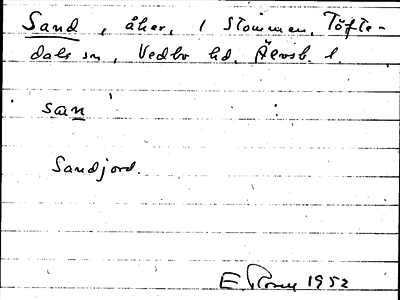 Sand, åker, i Stommen, Töfte-
dals sn, Vedbo hd, Älvsb. l.
san
Sandjord.
E 1952